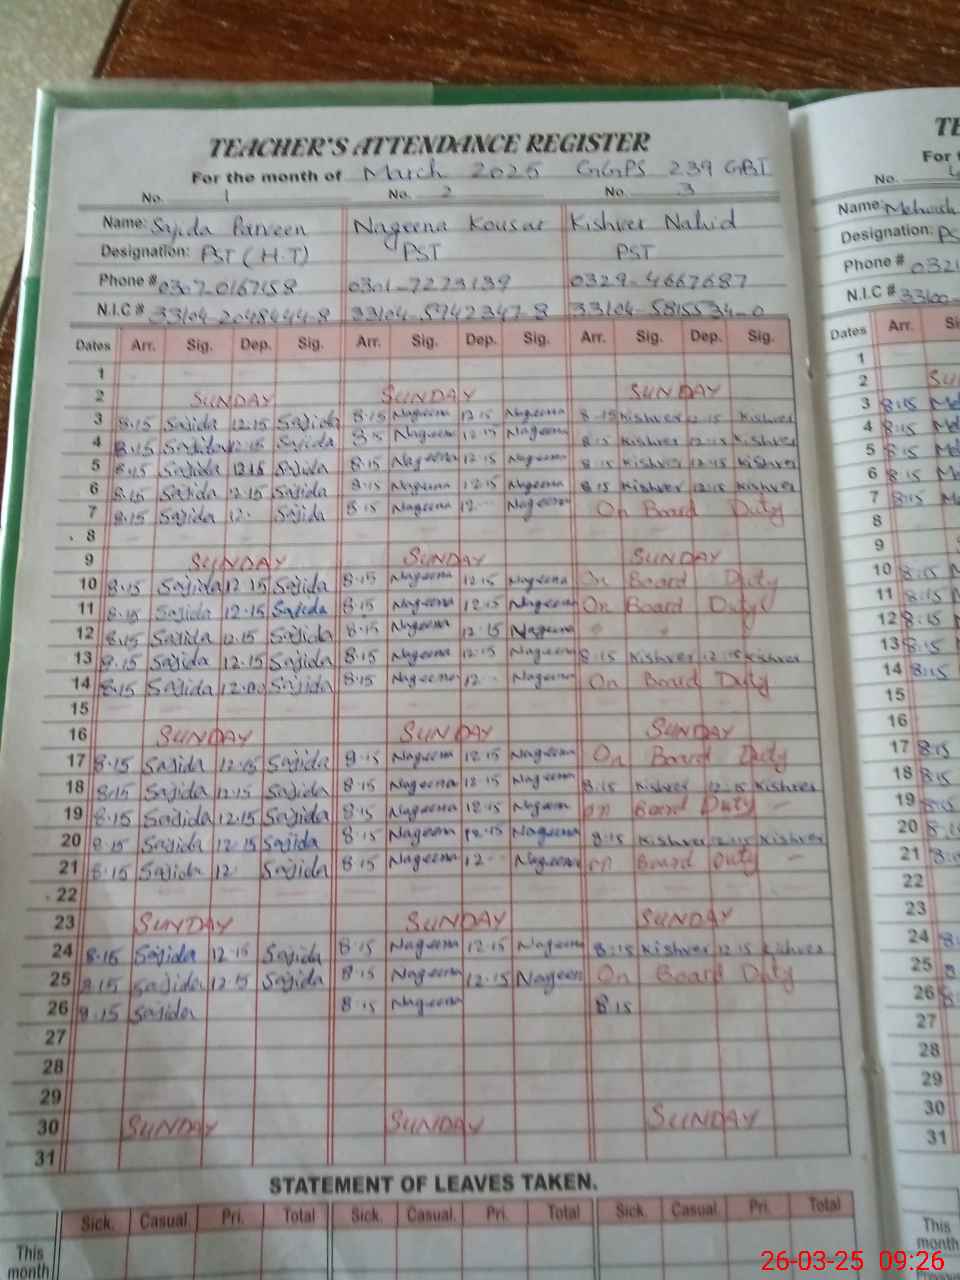 TEACHER'S ATTENDANCE REGISTER
For the month of March 2025 GGPS 239 GBI
No. 1 No. 2 No. 3
Name: Sajida Parveen Nageena Kousar Kishver Nahid
Designation: PST (H.T) PST PST
Phone # 0307-0167158 0301-7273139 0329-4667687
N.I.C # 33104-2048444-8 33104-5942347-8 33104-5815534-0
Dates Arr. Sig. Dep. Sig. Arr. Sig. Dep. Sig. Arr. Sig. Dep. Sig.
1
2 SUNDAY SUNDAY SUNDAY
3 8:15 Sajida 12:15 Sajida 8:15 Nageena 12:15 Nageena 8:15 Kishver 12:15 Kishver
4 8:15 Sajida 12:15 Sajida 8:15 Nageena 12:15 Nageena 8:15 Kishver 12:15 Kishver
5 8:15 Sajida 12:15 Sajida 8:15 Nageena 12:15 Nageena 8:15 Kishver 12:15 Kishver
6 8:15 Sajida 12:15 Sajida 8:15 Nageena 12:15 Nageena 8:15 Kishver 12:15 Kishver
7 8:15 Sajida 12: Sajida 8:15 Nageena 12 Nageena On Board Duty
8
9 SUNDAY SUNDAY SUNDAY
10 8:15 Sajida 12:15 Sajida 8:15 Nageena 12:15 Nageena On Board Duty
11 8:15 Sajida 12:15 Sajida 8:15 Nageena 12:15 Nageena On Board Duty
12 8:15 Sajida 12:15 Sajida 8:15 Nageena 12:15 Nageena
13 8:15 Sajida 12:15 Sajida 8:15 Nageena 12:15 Nageena 8:15 Kishver 12:15 Kishver
14 8:15 Sajida 12:00 Sajida 8:15 Nageena 12 Nageena On Board Duty
15
16 SUNDAY SUNDAY SUNDAY
17 8:15 Sajida 12:15 Sajida 8:15 Nageena 12:15 Nageena On Board Duty
18 8:15 Sajida 12:15 Sajida 8:15 Nageena 12:15 Nageena 8:15 Kishver 12:15 Kishver
19 8:15 Sajida 12:15 Sajida 8:15 Nageena 12:15 Nageena on Board Duty
20 8:15 Sajida 12:15 Sajida 8:15 Nageena 12:15 Nageena 8:15 Kishver 12:15 Kishver
21 8:15 Sajida 12: Sajida 8:15 Nageena 12 Nageena on Board Duty
22
23 SUNDAY SUNDAY SUNDAY
24 8:15 Sajida 12:15 Sajida 8:15 Nageena 12:15 Nageena 8:15 Kishver 12:15 Kishver
25 8:15 Sajida 12:15 Sajida 8:15 Nageena 12:15 Nageen On Board Duty
26 8:15 Sajida 8:15 Nageena 8:15
27
28
29
30 SUNDAY SUNDAY SUNDAY
31
STATEMENT OF LEAVES TAKEN.
Sick. Casual. Pri. Total Sick. Casual. Pri. Total Sick. Casual. Pri. Total
This month
For
No.
Name: Mehwish
Designation: PS
Phone # 0321
N.I.C # 33100
Dates Arr.
1
2 SUN
3 8:15
4 8:15
5 8:15
6 8:15
7 8:15
8
9
10 8:15
11 8:15
12 8:15
13 8:15
14 8:15
15
16
17 8:15
18 8:15
19 8:15
20
21
22
23
24
25
26
27
28
29
30
31
This month
26-03-25 09:26